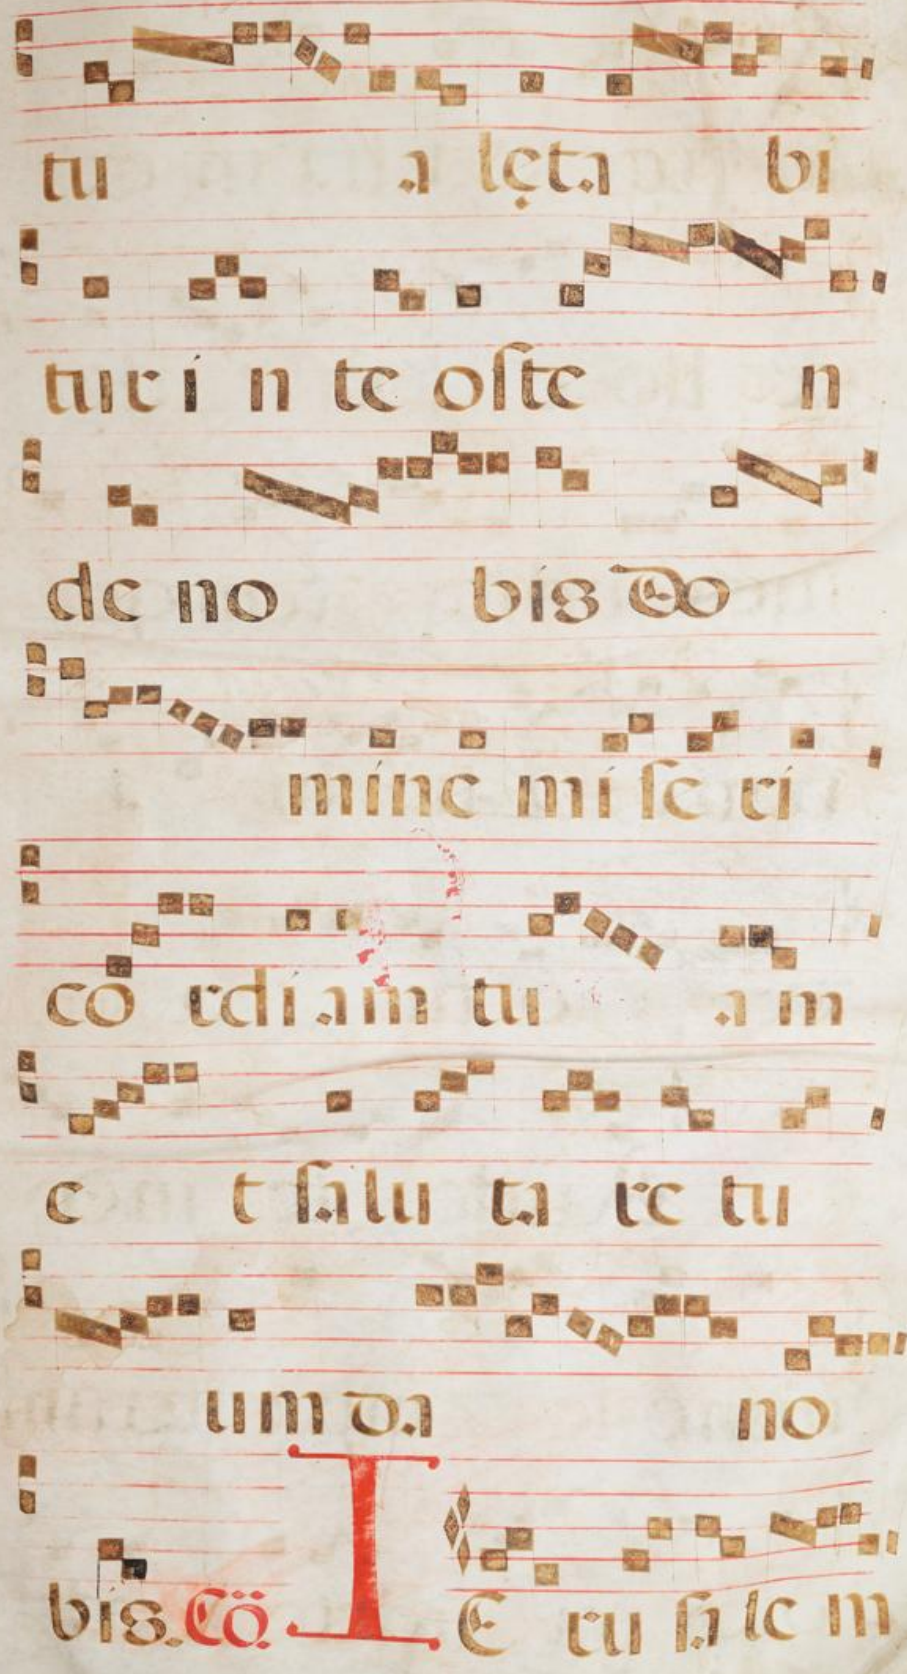 tu a lęta bi
tur í n te oſte n
de no bis Do
míne mi ſe ri
co rdi am tu a m
e t ſalu ta re tu
um da no
bis. Cō. I E ru ſa le m